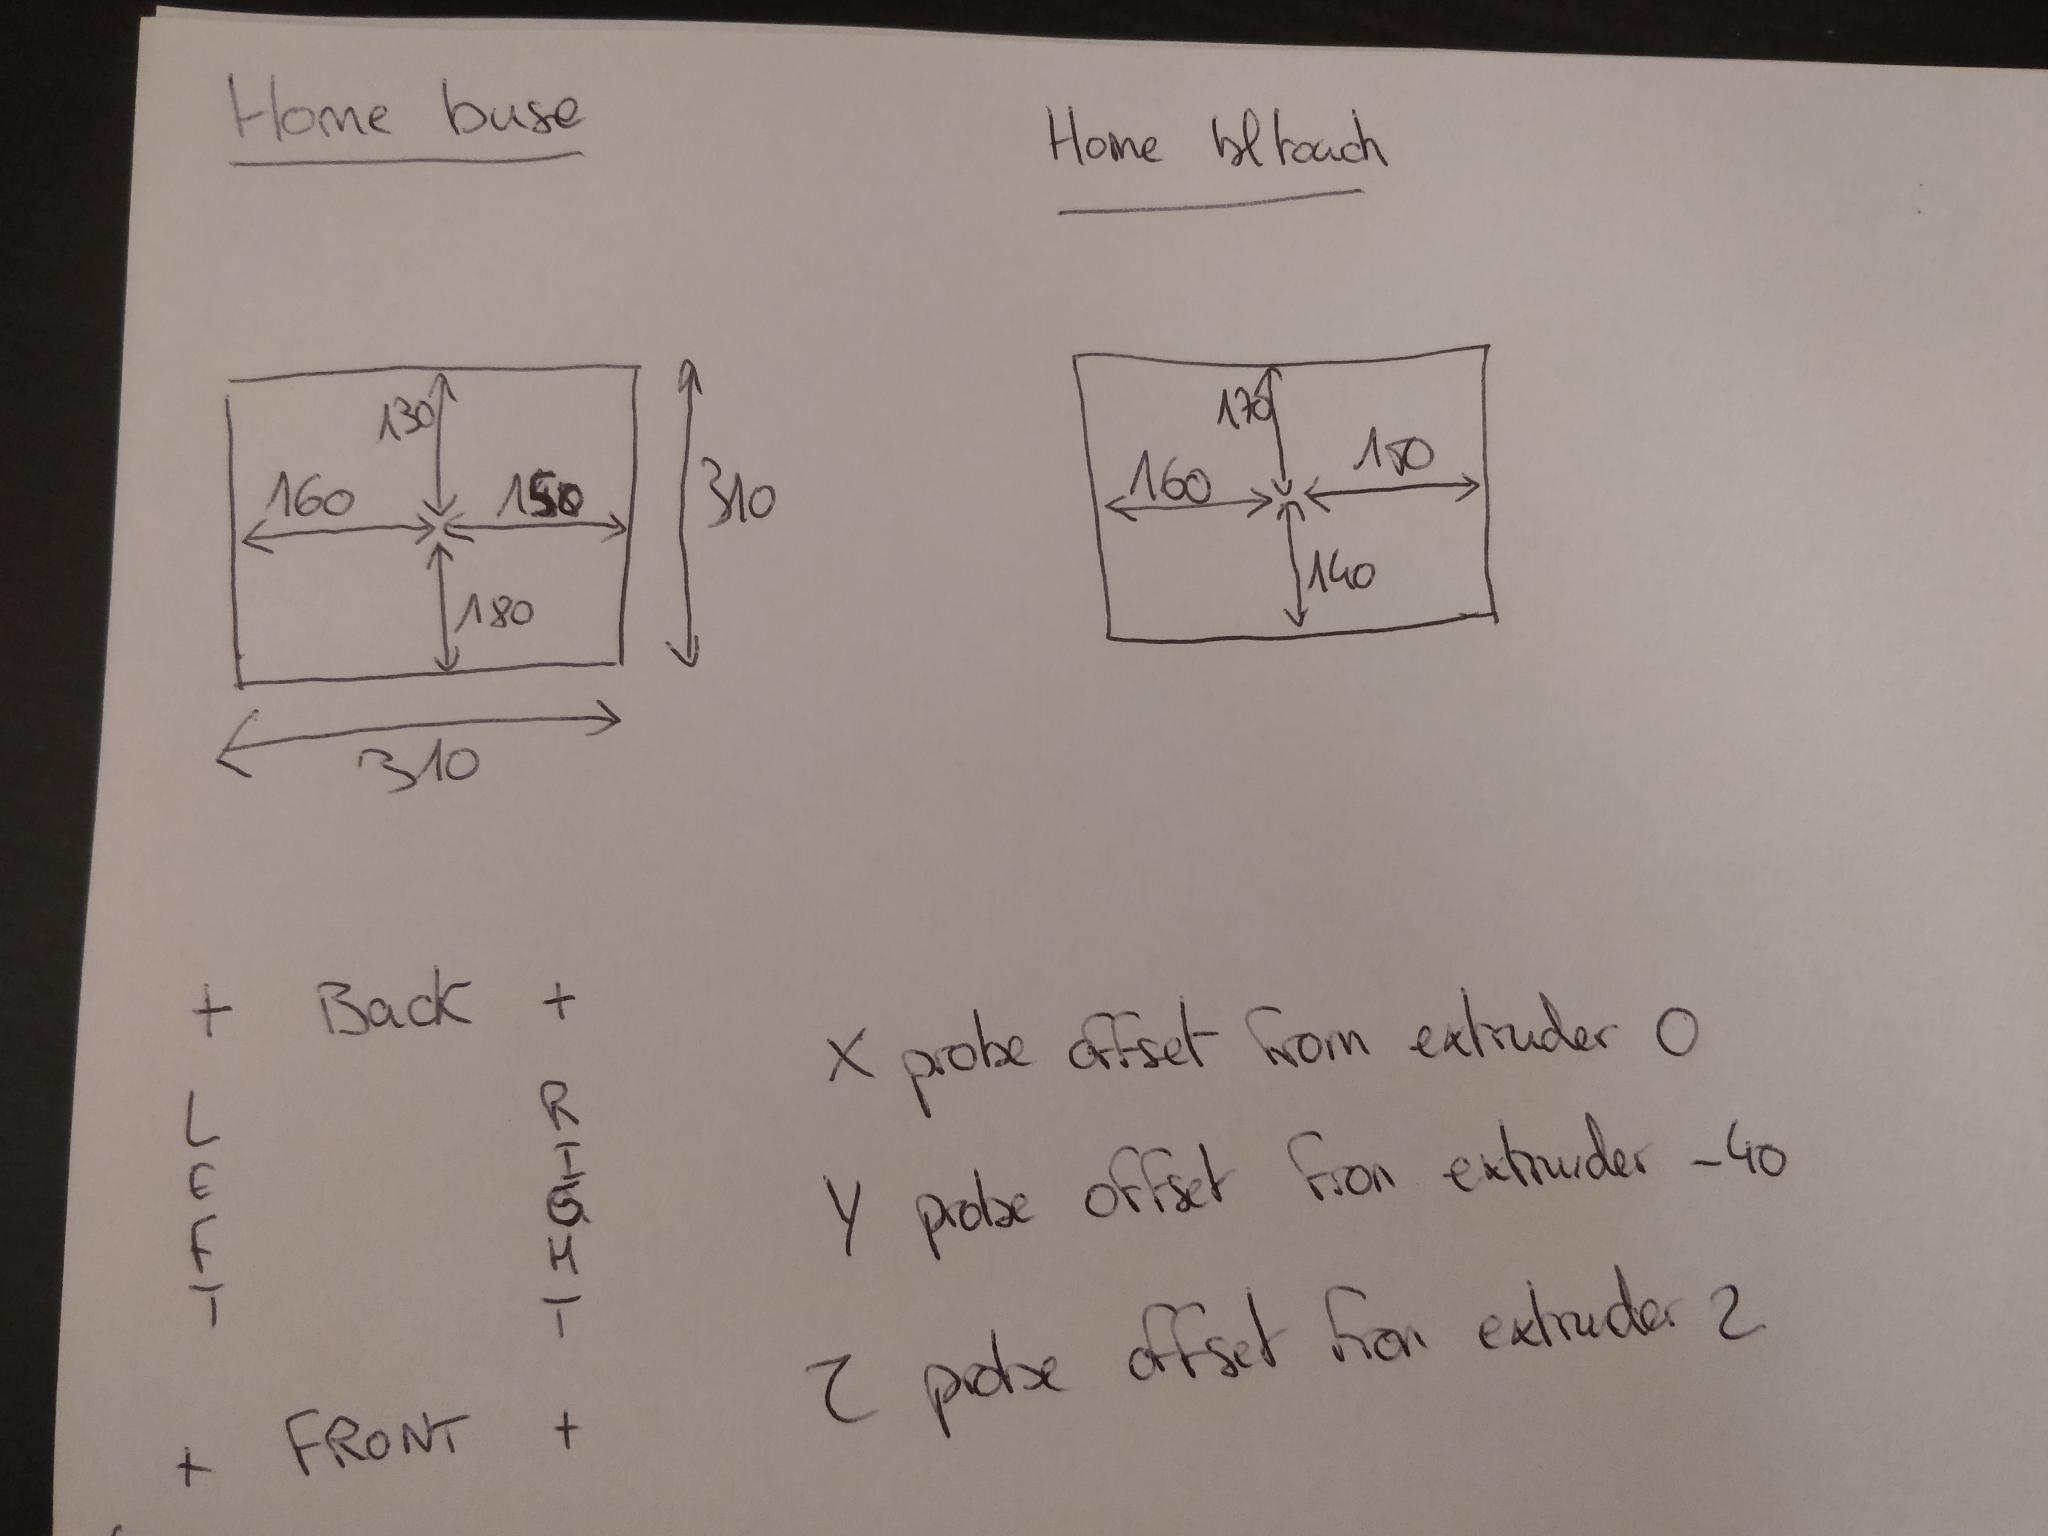 Home buse
Home bltouch
130
160
150
180
310
310
170
160
150
140
+ Back +
LEFT
RIGHT
+ FRONT +
X probe offset from extruder 0
Y probe offset fron extruder -40
Z probe offset fron extruder 2